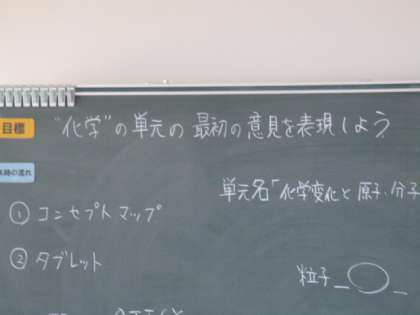 目標 "化学"の単元の最初の意見を表現しよう
時の流れ
単元名「化学変化と原子・分子
① コンセプトマップ
② タブレット
粒子